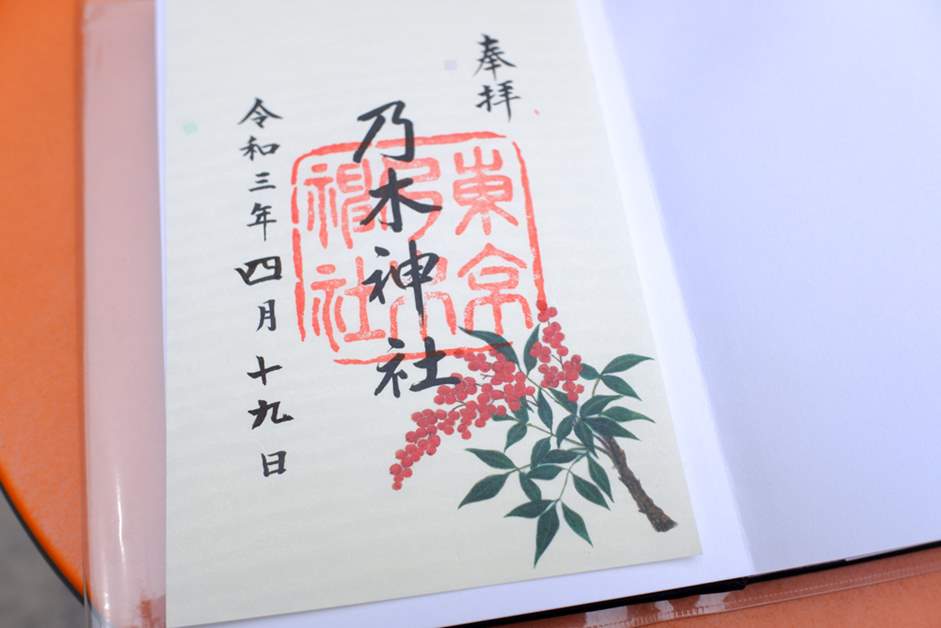 奉拝
乃木神社
東京
乃木
神社
令和三年四月十九日